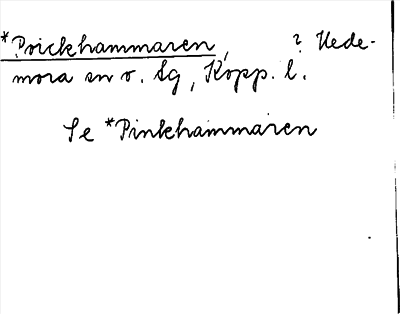 *Prickhammaren, ? Hede-
mora sn o. Sg, Kopp. l.
Se *Pinkhammaren